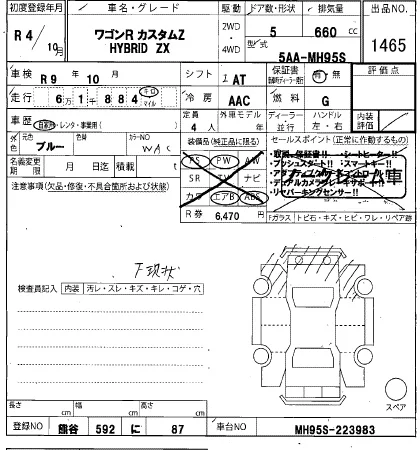 初度登録年月 車名・グレード 駆動 ドア数・形状 排気量 出品NO
R 4/10月 ワゴンR カスタムZ HYBRID ZX 2WD・4WD 5 660cc 1465
型式 5AA-MH95S
車検 R9年10月 シフト IAT 保証書 有・無 評価点
走行 6万1千884 キロ マイル 冷房 AAC 燃料 G
車歴 自家用・レンタ・事業用( ) 定員 4人 外車モデル 年 ディーラー・並行 ハンドル 左・右 内装評価
色 元色 ブルー 色 カラーNO WAC 装備品(純正品に限る) セールスポイント(正常に作動するもの)
名義変更期限 月 日迄 積載 t PS PW AW
・取説、保証書!! ・シートヒーター!!
・プッシュスタート!! ・スマートキー!!
注意事項(欠品・修復・不具合箇所および状態) SR TV ナビ
・リヤパーキングセンサー!!
カワ エアB ABS
R券 6,470円 Fガラス トビ石・キズ・ヒビ・ワレ・リペア跡
下現状
検査員記入 内装 汚レ・スレ・キズ・キレ・コゲ・穴
スペア
長さ cm 幅 cm 高さ cm
登録NO 熊谷 592 に 87 車台NO MH95S-223983